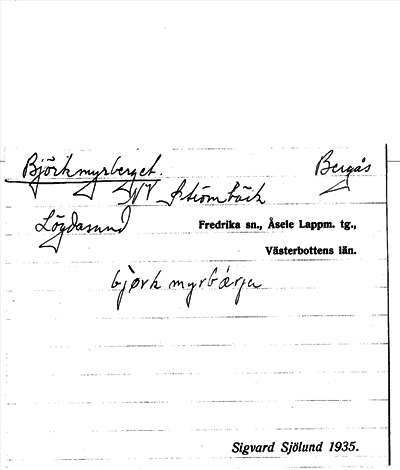 Björkmyrberget. Bergås
NV Strömbäck
Lögdasund Fredrika sn., Åsele Lappm. tg.,
Västerbottens län.
bjørk myrbærja
Sigvard Sjölund 1935.